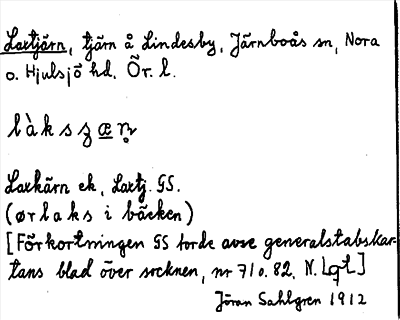 Laxtjärn, tjärn å Lindesby, Järnboås sn, Nora
o. Hjulsjö hd, Ör. l.
làksʒæn̥
Laxkärn ek, Laxtj. GS.
(ørlaks i bäcken)
[Förkortningen GS torde avse generalstabskar-
tans blad över socknen, nr 71 o. 82, N.
Jöran Sahlgren 1912